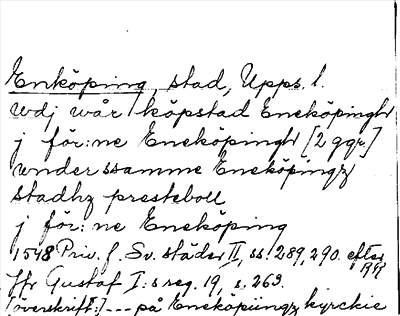 Enköping, stad, Upps. l.
wdj wår köpstad Eneköpingh
j för:ne Eneköpingh [2 ggr]
wnder ssamme Eneköpingz
stadhz presteboll
j för:ne Eneköping
1548 Priv. f. Sv. städer II, ss. 289, 290. efter
Jfr Gustaf I:s reg. 19, s. 263.
[överskrift:] --- på Eneköpiingz kyrckie